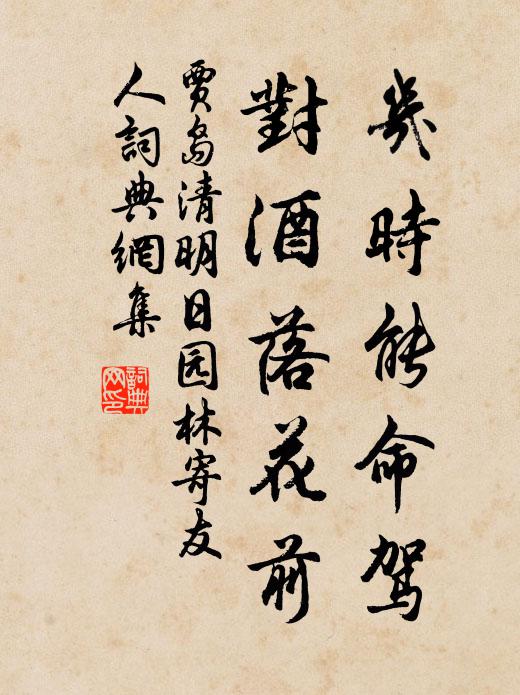 幾時能命駕
對酒落花前
贾岛清明日园林寄友
人詞典網集
詞典
网印